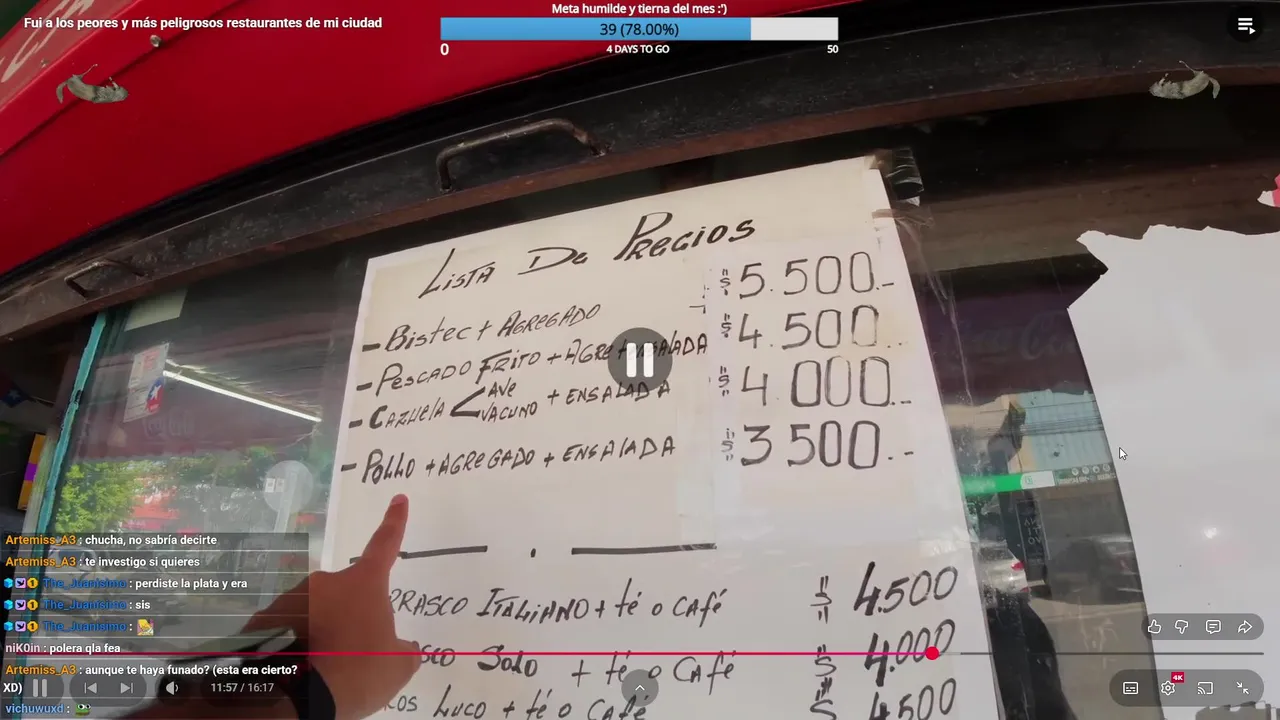 Fui a los peores y más peligrosos restaurantes de mi ciudad
Meta humilde y tierna del mes :')
39 (78.00%)
0 4 DAYS TO GO 50
LISTA DE PRECIOS
- BISTEC + AGREGADO $ 5.500.-
- PESCADO FRITO + AGRE + ENSALADA $ 4.500.-
- CAZUELA < AVE VACUNO + ENSALADA $ 4 000.-
- POLLO + AGREGADO + ENSALADA $ 3 500.-
RRASCO ITALIANO + té o CAFé $ 4.500
SCO SOLO + té o CAFé $ 4.000
ROS LUCO + té o CAFé $ 4500
Artemiss_A3 : chucha, no sabría decirte
Artemiss_A3 : te investigo si quieres
The_Juanisimo : perdiste la plata y era
The_Juanisimo : sis
The_Juanisimo :
niK0in : polera qla fea
Artemiss_A3 : aunque te haya funado? (esta era cierto?
XD)
vichuwuxd :
11:57 / 16:17
4K